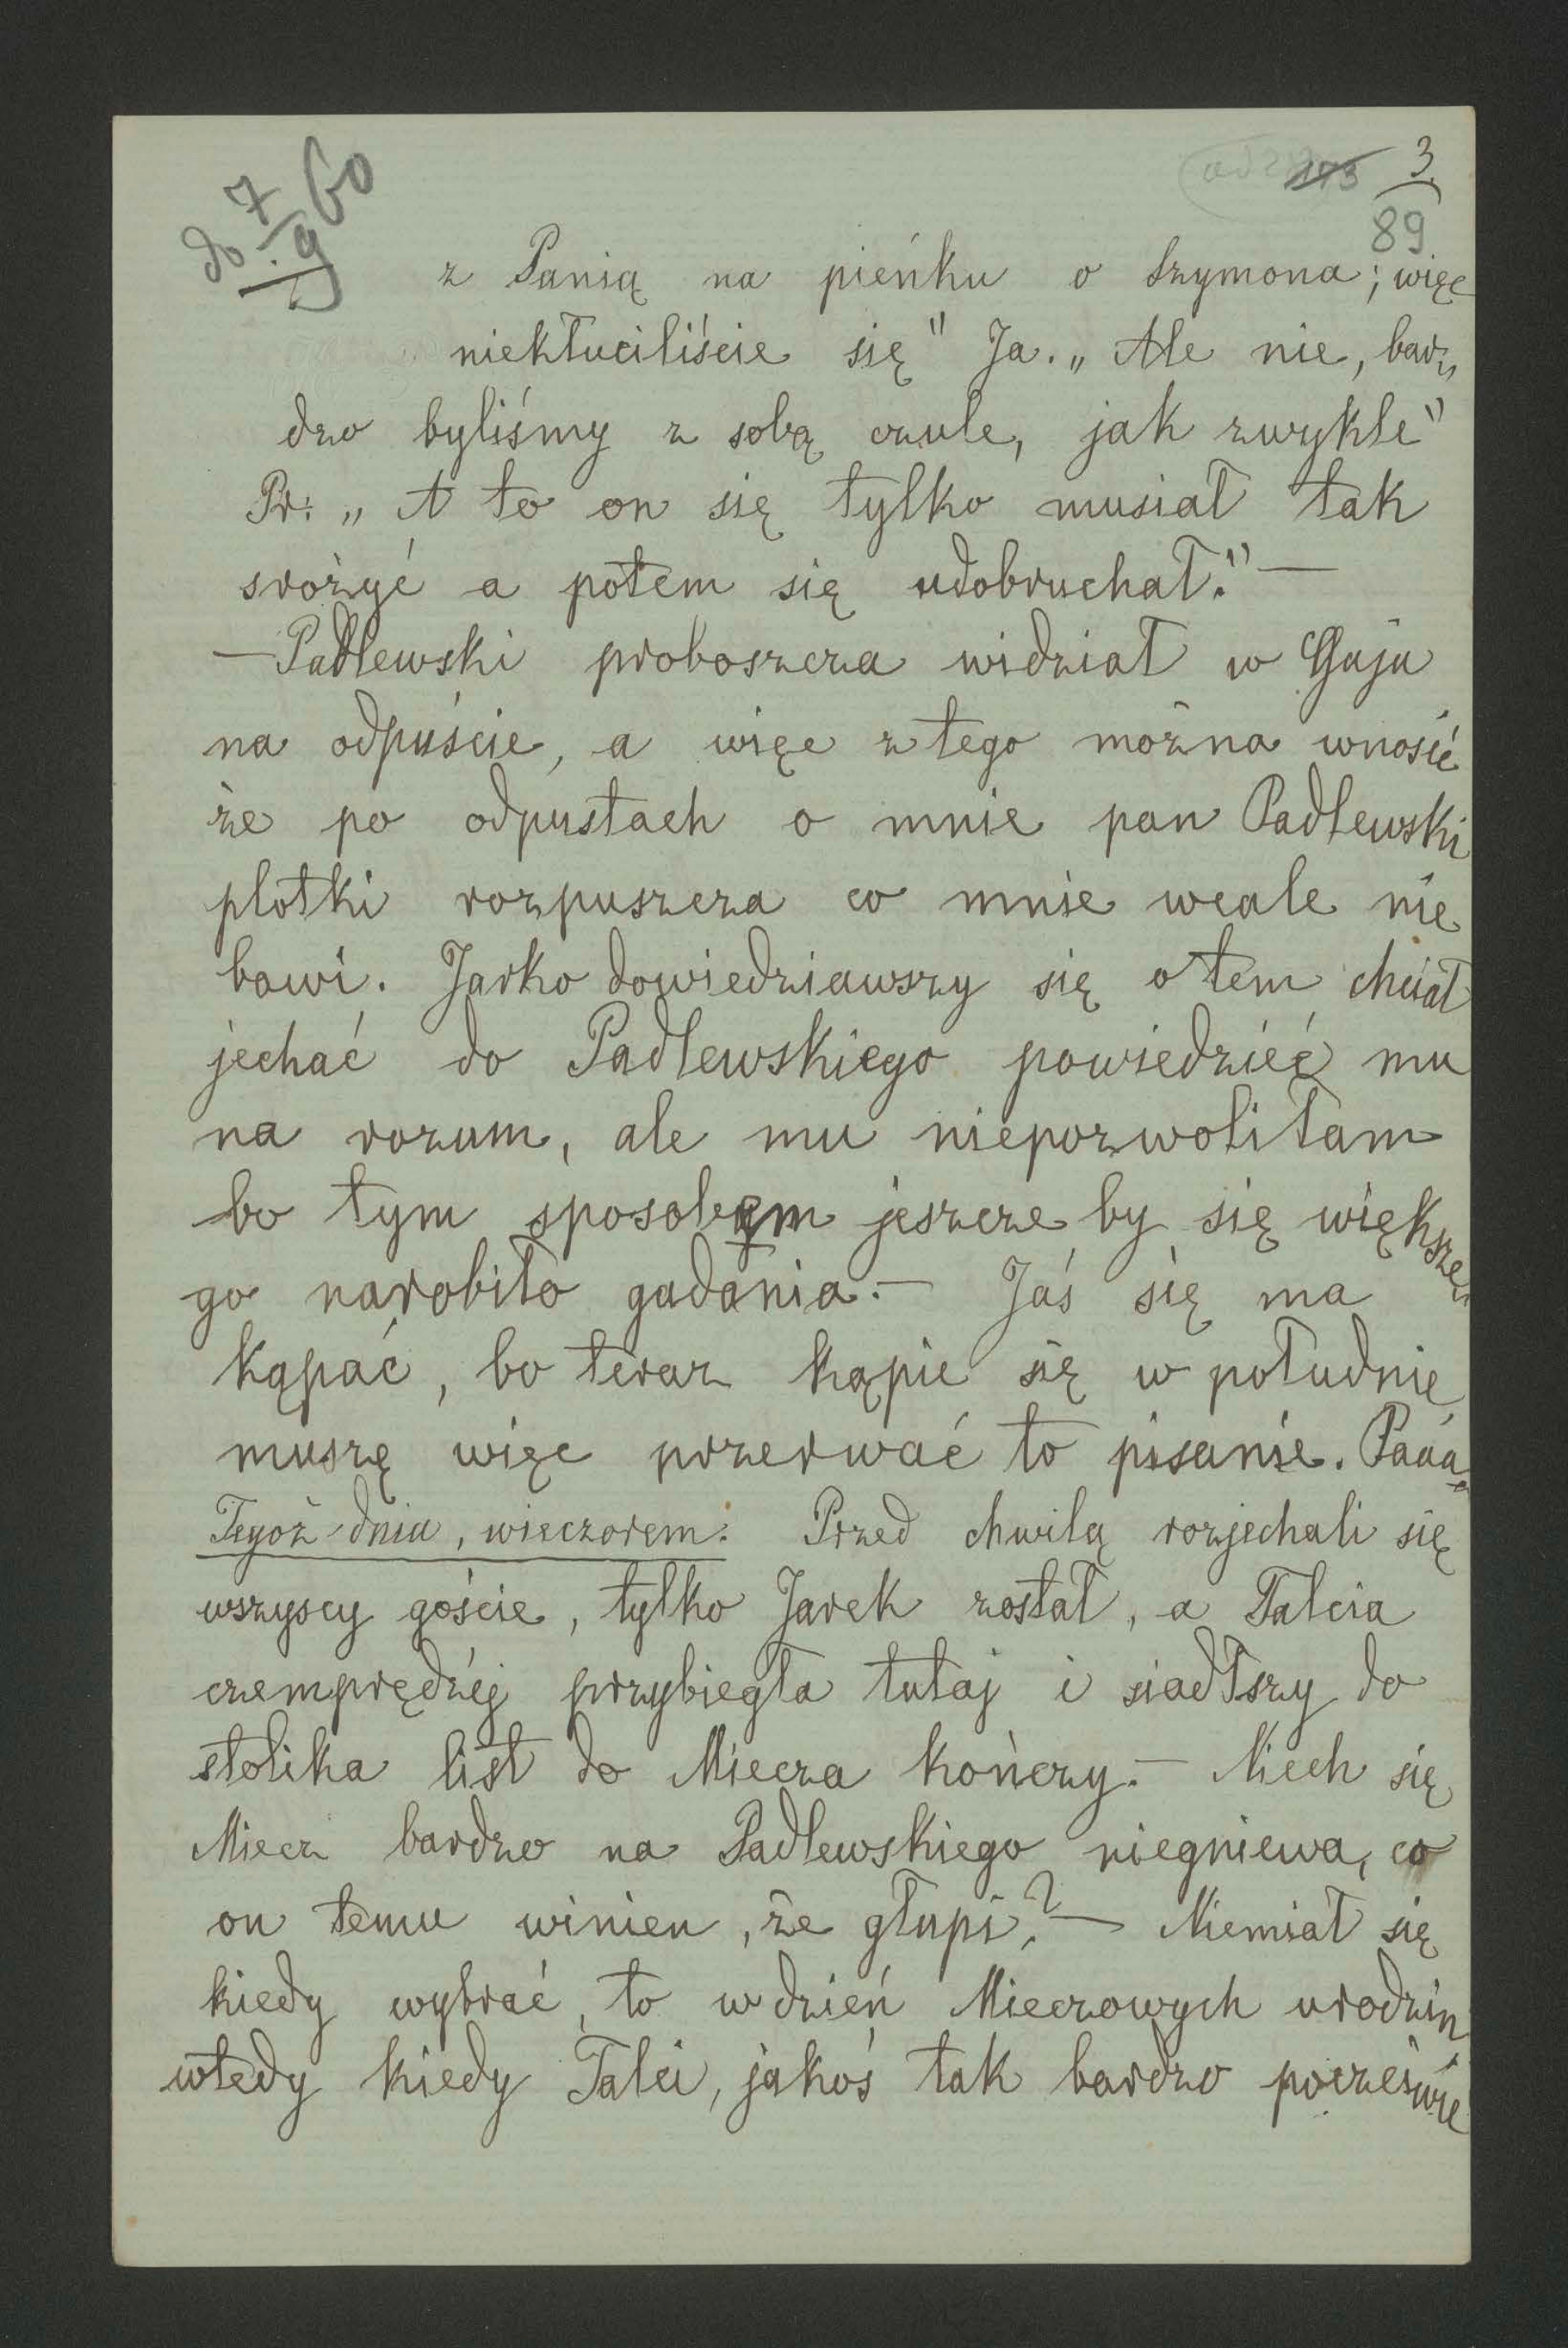 do 7/9 60
173 3
89
z Panią na pieńku o Szymona; więc
niekłuciliście się" Ja. „Ale nie, bar„
dzo byliśmy z sobą czule, jak zwykle"
Pr: „A to on się tylko musiał tak
srożyć a potem się udobruchał." —
— Padlewski proboszcza widział w Gaju
na odpuście, a więc z tego można wnosić
że po odpustach o mnie pan Padlewski
plotki rozpuszcza co mnie wcale nie
bawi. Jarko dowiedziawszy się o tem chciał
jechać do Padlewskiego powiedzieć mu
na rozum, ale mu niepozwoliłam
bo tym sposobem jeszcze by się większe„
go narobiło gadania. — Jaś się ma
kąpać, bo teraz kąpie się w południe,
muszę więc przerwać to pisanie. Paaa
Tegoż dnia, wieczorem. Przed chwilą rozjechali się
wszyscy goście, tylko Jarek został, a Talcia
czemprędzéj przybiegła tutaj i siadłszy do
stolika list do Miecza kończy. — Niech się
Miecz bardzo na Padlewskiego niegniewa, co
on temu winien, że głupi? — Niemiał się
kiedy wybrać, to w dzień Mieczowych urodzin,
wtedy kiedy Talci, jakoś tak bardzo poczciwie